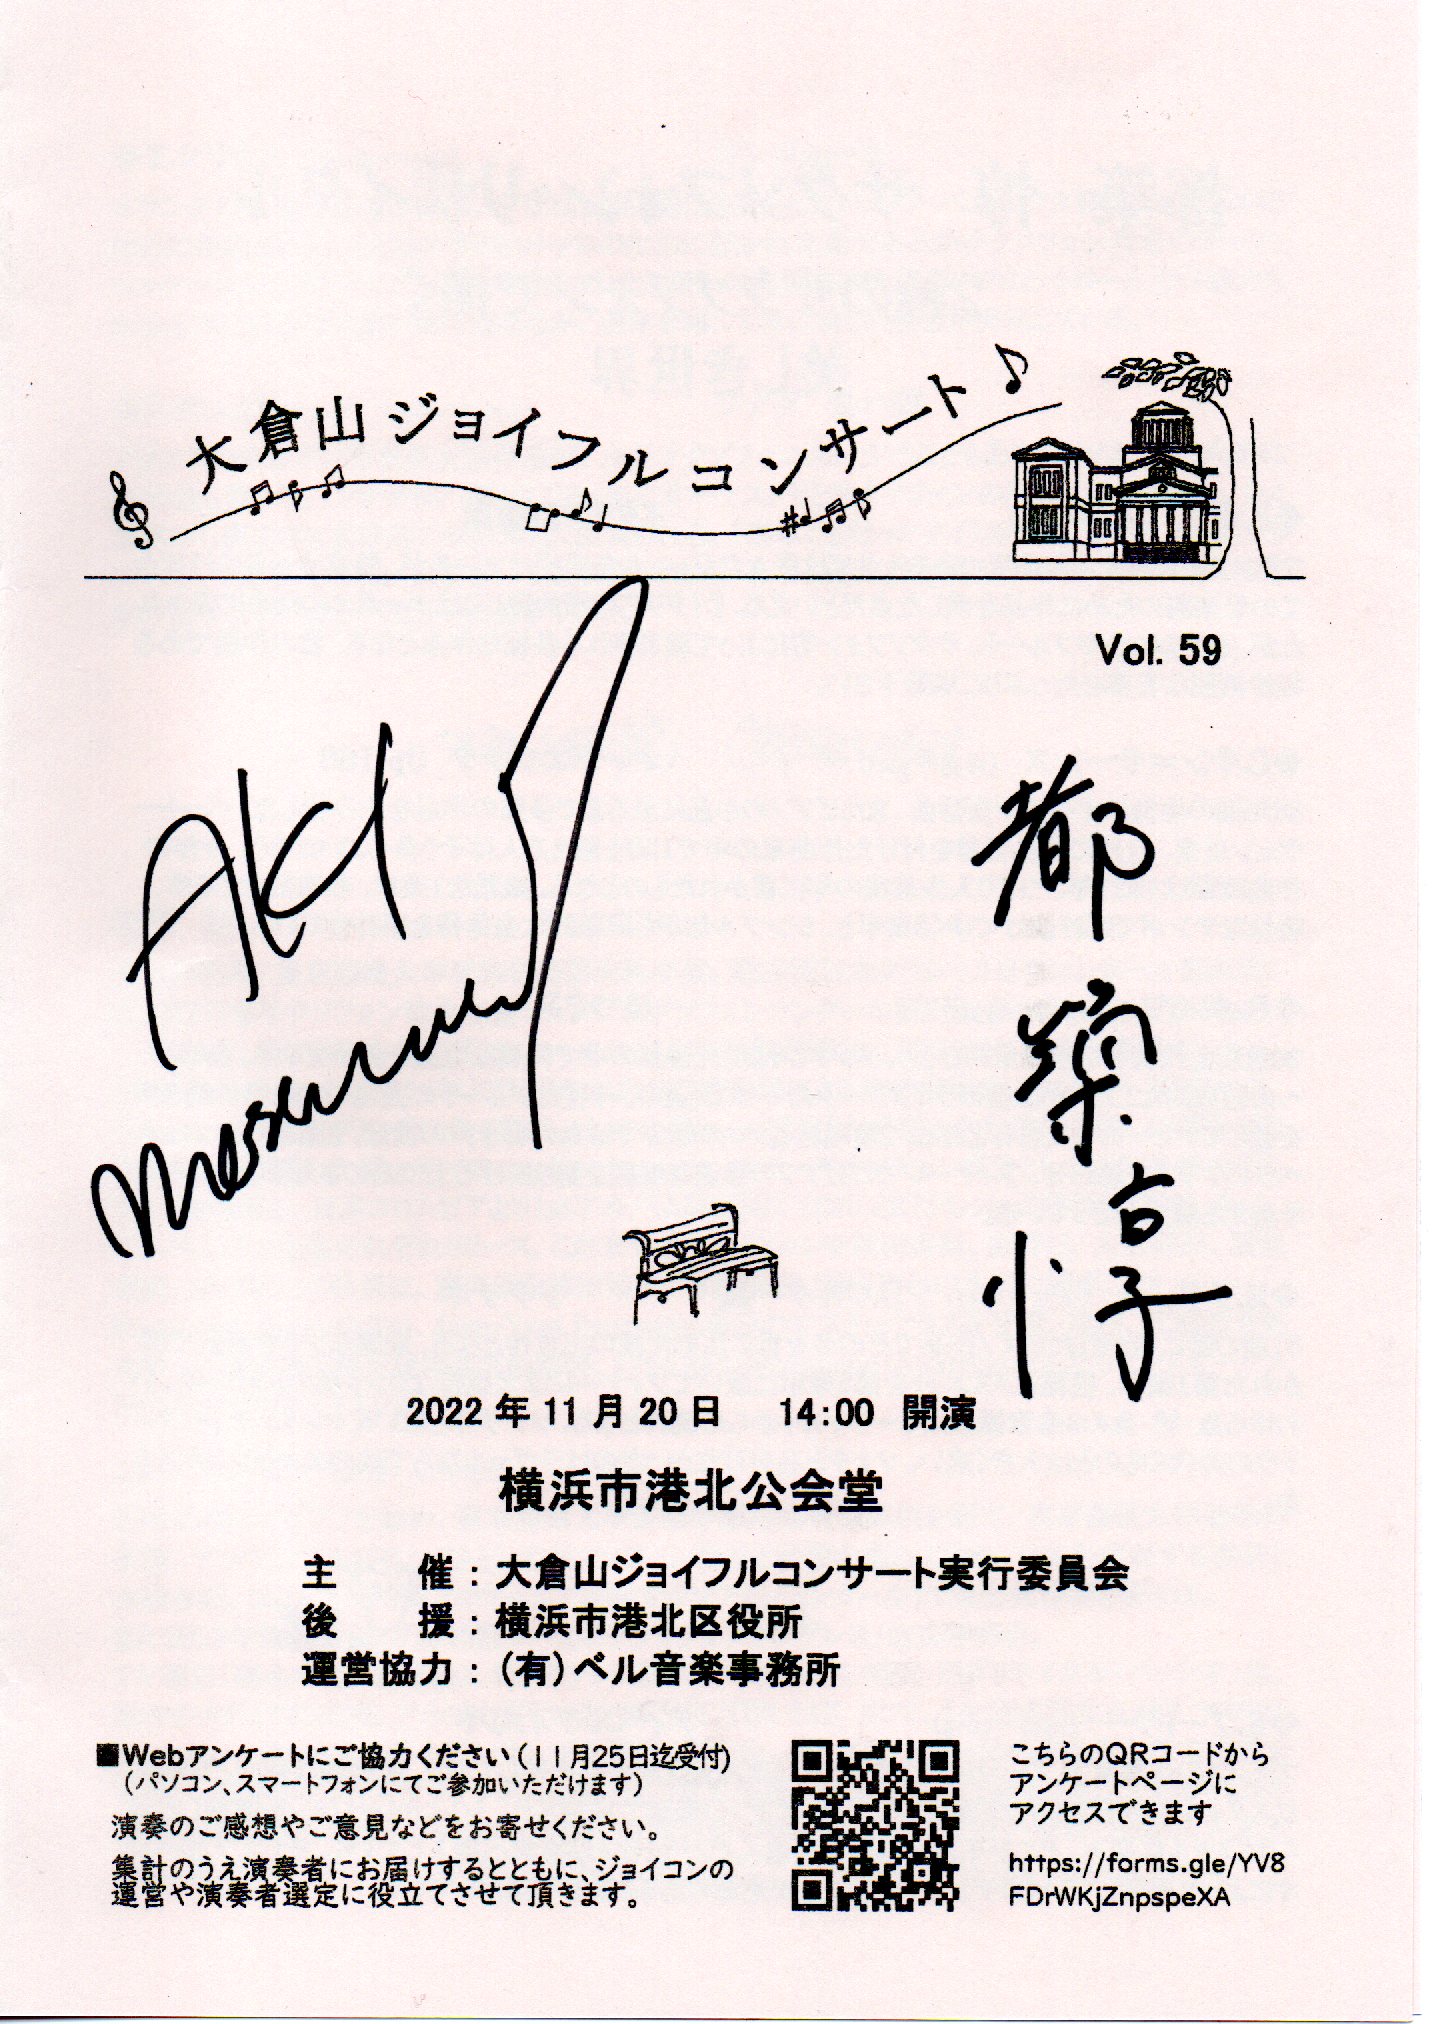 大倉山ジョイフルコンサート
Vol. 59
AKI
都築惇
2022年11月20日 14:00 開演
横浜市港北公会堂
主 催：大倉山ジョイフルコンサート実行委員会
後 援：横浜市港北区役所
運営協力：（有）ベル音楽事務所
■Webアンケートにご協力ください（11月25日迄受付）
（パソコン、スマートフォンにてご参加いただけます）
演奏のご感想やご意見などをお寄せください。
集計のうえ演奏者にお届けするとともに、ジョイコンの
運営や演奏者選定に役立てさせて頂きます。
こちらのQRコードから
アンケートページに
アクセスできます
https://forms.gle/YV8
FDrWKjZnpspeXA